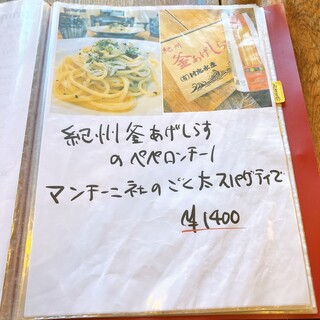 紀州
釜あげしらす
紀州釜あげしらす
のペペロンチーノ
マンチーニ社のごく太スパゲティで
¥1400